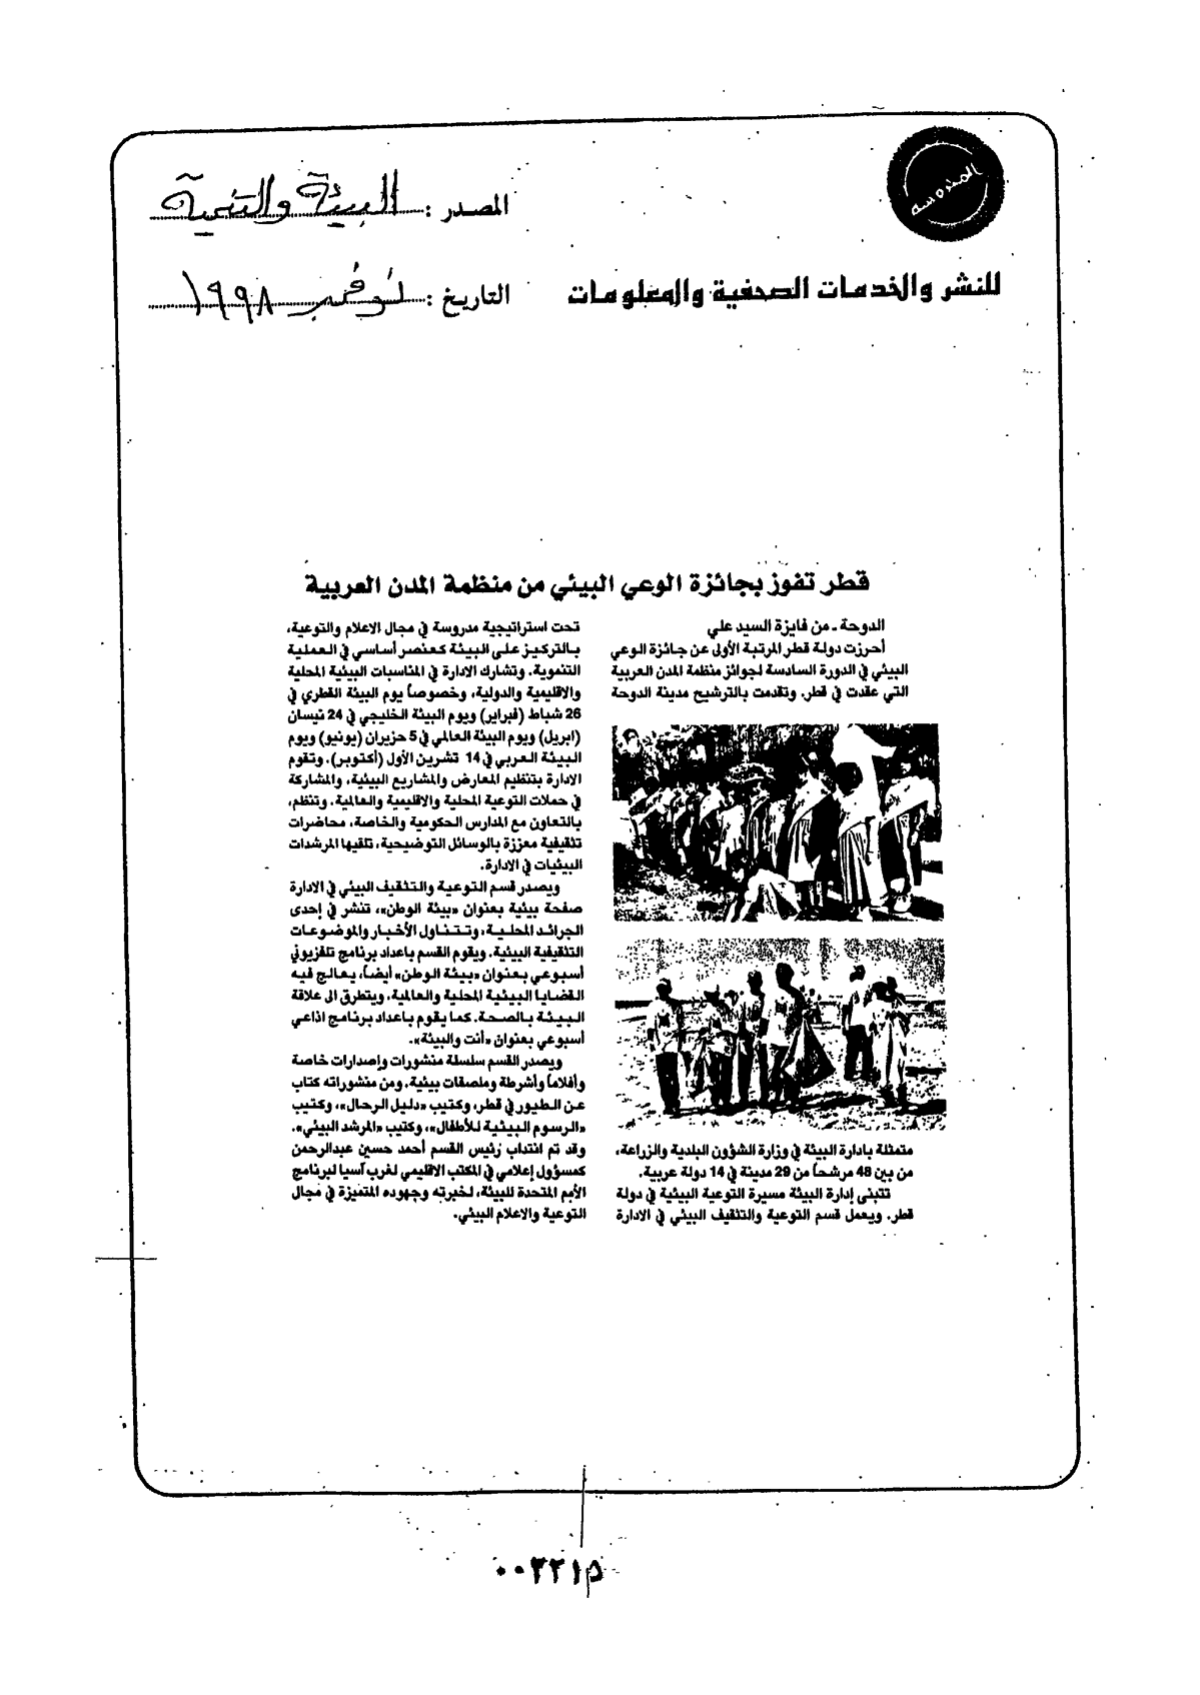 المحروسة
للنشر والخدمات الصحفية والمعلومات
المصدر : البيئة والتنمية
التاريخ : نوفمبر ١٩٩٨
قطر تفوز بجائزة الوعي البيئي من منظمة المدن العربية
الدوحة ـ من فايزة السيد علي
أحرزت دولة قطر المرتبة الأولى عن جائزة الوعي
البيئي في الدورة السادسة لجوائز منظمة المدن العربية
التي عقدت في قطر. وتقدمت بالترشيح مدينة الدوحة
متمثلة بادارة البيئة في وزارة الشؤون البلدية والزراعة،
من بين 48 مرشحاً من 29 مدينة في 14 دولة عربية.
تتبنى إدارة البيئة مسيرة التوعية البيئية في دولة
قطر. ويعمل قسم التوعية والتثقيف البيئي في الادارة
تحت استراتيجية مدروسة في مجال الاعلام والتوعية،
بالتركيز على البيئة كعنصر أساسي في العملية
التنموية. وتشارك الادارة في المناسبات البيئية المحلية
والاقليمية والدولية، وخصوصاً يوم البيئة القطري في
26 شباط (فبراير) ويوم البيئة الخليجي في 24 نيسان
(ابريل) ويوم البيئة العالمي في 5 حزيران (يونيو) ويوم
البيئة العربي في 14 تشرين الأول (أكتوبر). وتقوم
الادارة بتنظيم المعارض والمشاريع البيئية، والمشاركة
في حملات التوعية المحلية والاقليمية والعالمية. وتنظم،
بالتعاون مع المدارس الحكومية والخاصة، محاضرات
تثقيفية معززة بالوسائل التوضيحية، تلقيها المرشدات
البيئيات في الادارة.
ويصدر قسم التوعية والتثقيف البيئي في الادارة
صفحة بيئية بعنوان «بيئة الوطن»، تنشر في إحدى
الجرائد المحلية، وتتناول الأخبار والموضوعات
التثقيفية البيئية. ويقوم القسم باعداد برنامج تلفزيوني
أسبوعي بعنوان «بيئة الوطن» أيضاً، يعالج فيه
القضايا البيئية المحلية والعالمية، ويتطرق الى علاقة
البيئة بالصحة. كما يقوم باعداد برنامج اذاعي
أسبوعي بعنوان «أنت والبيئة».
ويصدر القسم سلسلة منشورات وإصدارات خاصة
وأفلاماً وأشرطة وملصقات بيئية. ومن منشوراته كتاب
عن الطيور في قطر، وكتيب «دليل الرحال»، وكتيب
«الرسوم البيئية للأطفال»، وكتيب «المرشد البيئي».
وقد تم انتداب رئيس القسم أحمد حسين عبدالرحمن
كمسؤول إعلامي في المكتب الاقليمي لغرب آسيا لبرنامج
الأمم المتحدة للبيئة، لخبرته وجهوده المتميزة في مجال
التوعية والاعلام البيئي.